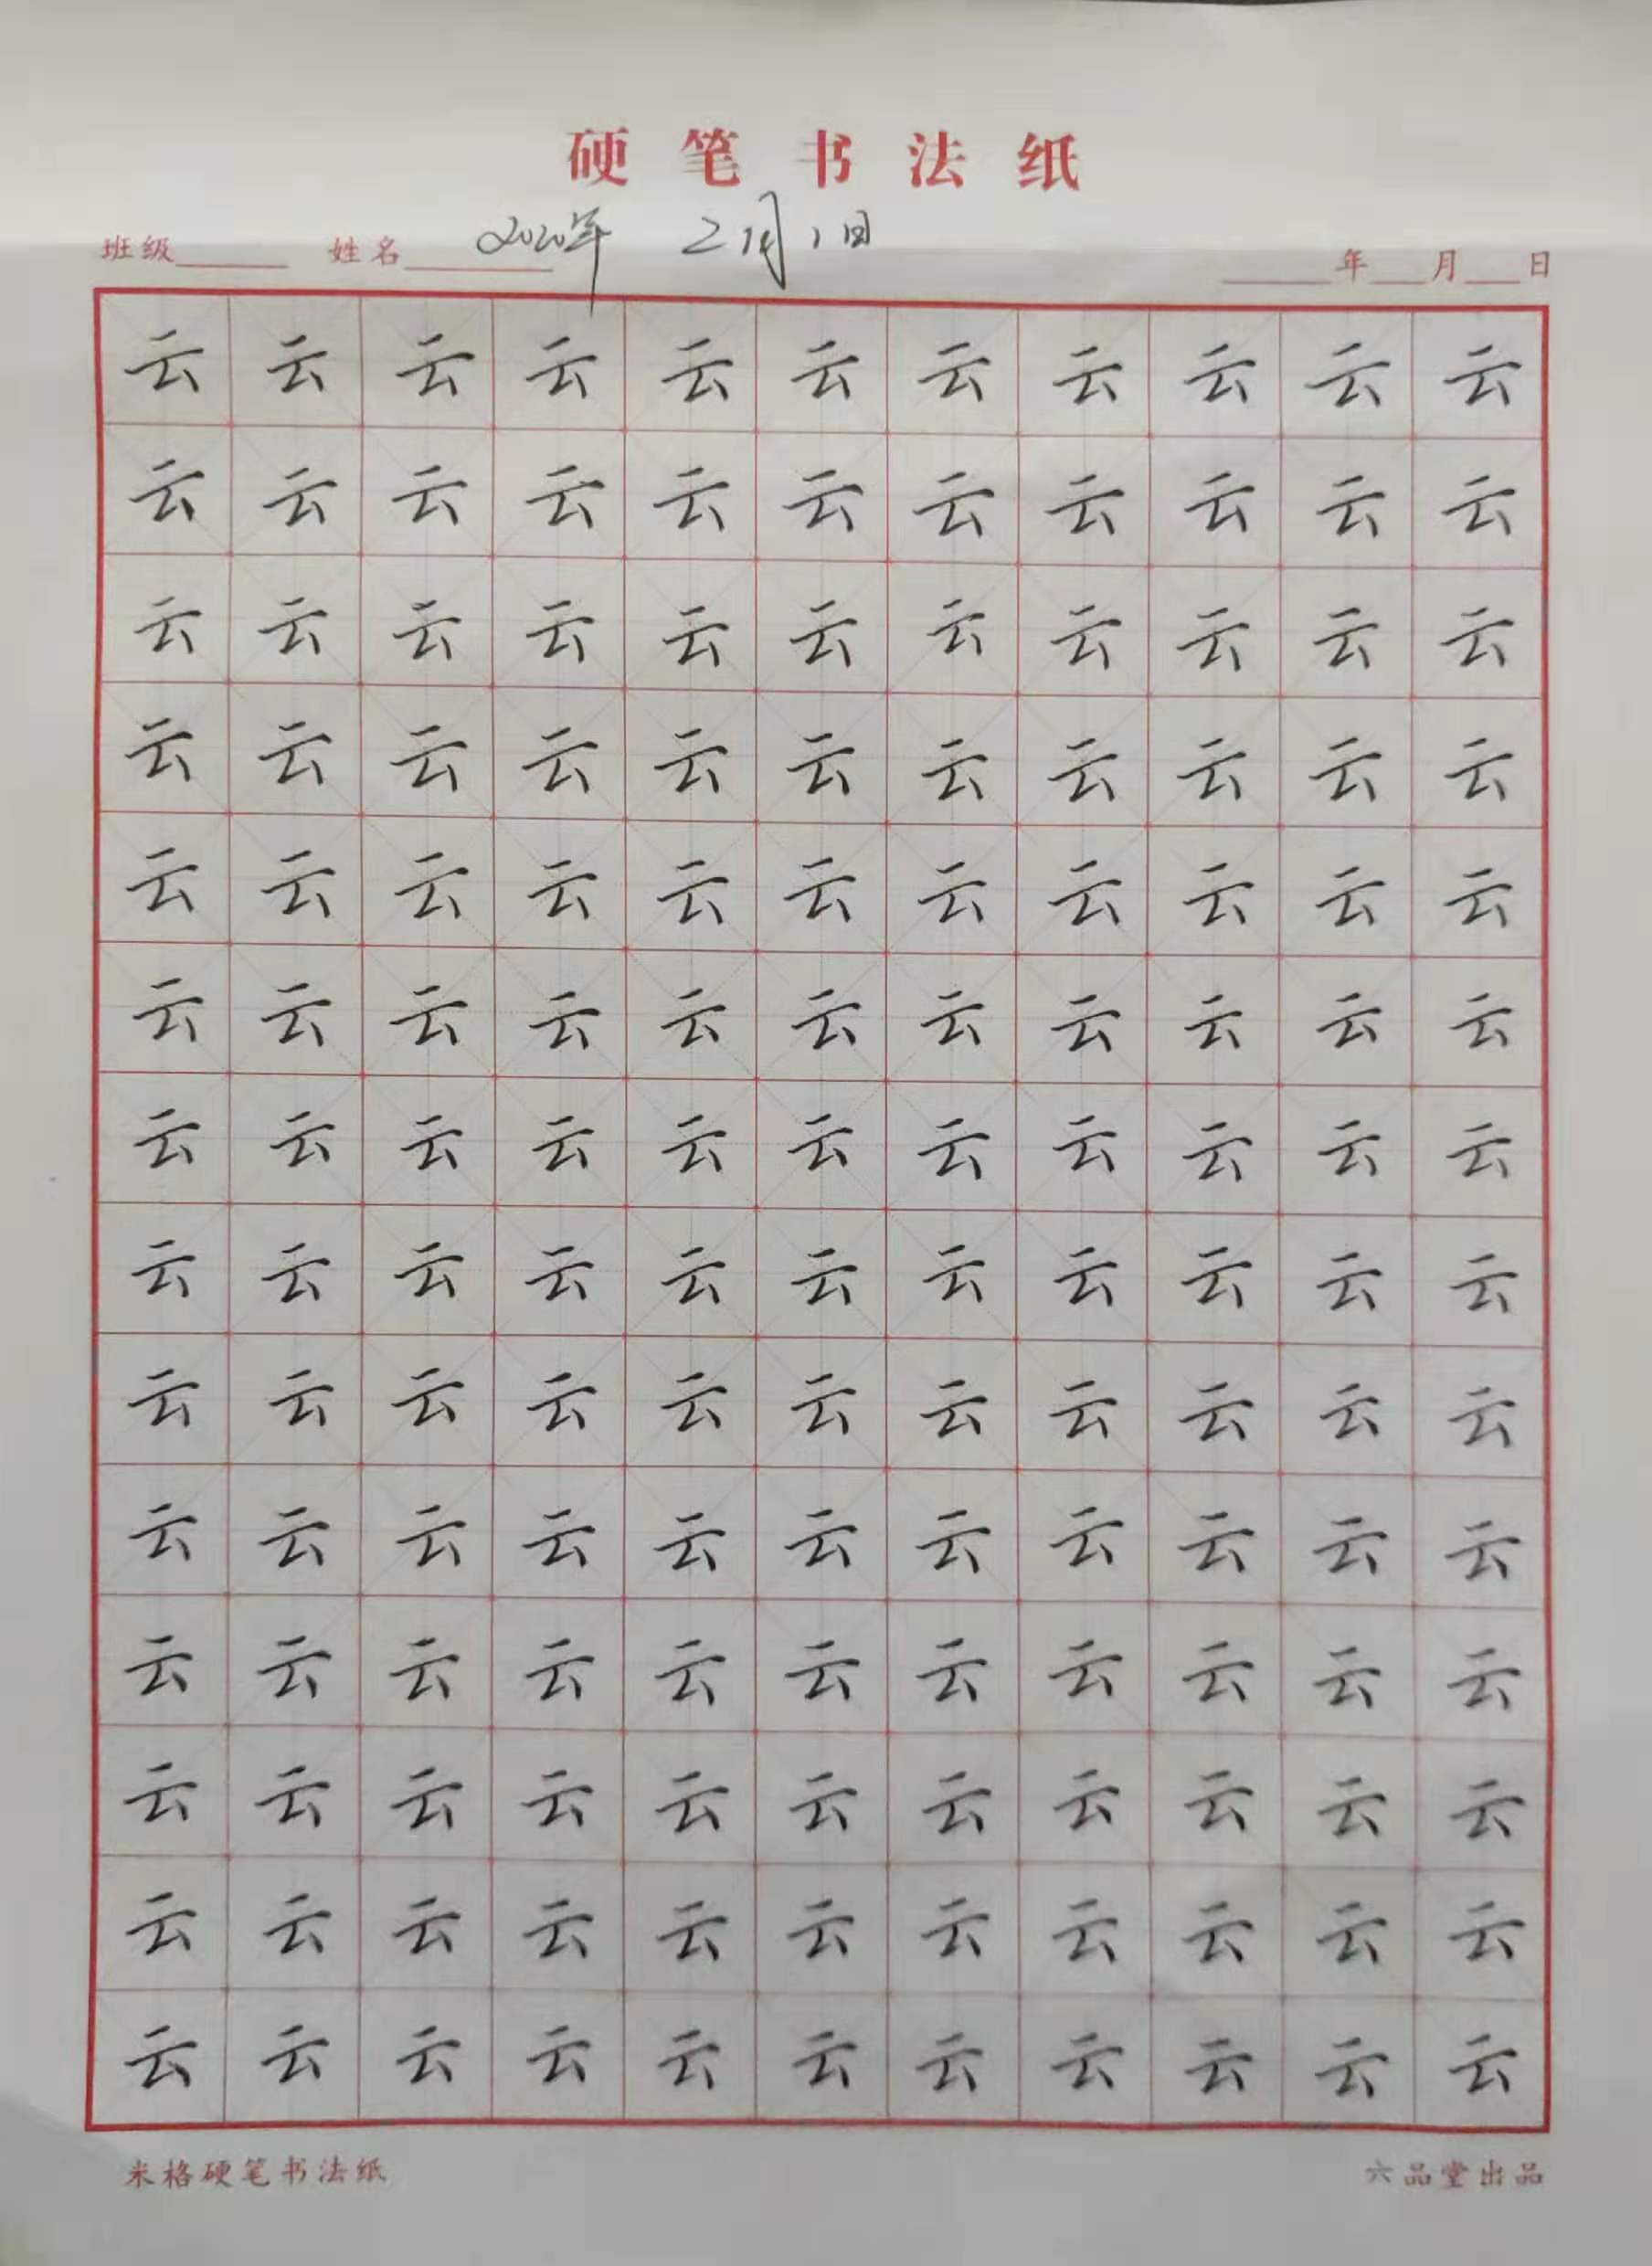 硬笔书法纸
班级 姓名 2020年 2月1日 年 月 日
云云云云云云云云云云云
云云云云云云云云云云云
云云云云云云云云云云云
云云云云云云云云云云云
云云云云云云云云云云云
云云云云云云云云云云云
云云云云云云云云云云云
云云云云云云云云云云云
云云云云云云云云云云云
云云云云云云云云云云云
云云云云云云云云云云云
云云云云云云云云云云云
云云云云云云云云云云云
云云云云云云云云云云云
米格硬笔书法纸 六品堂出品